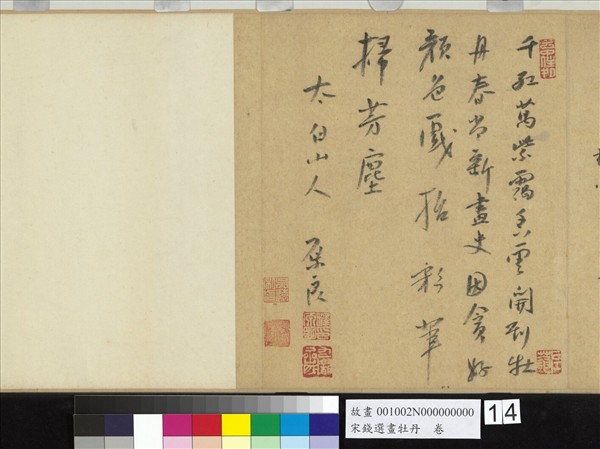 千紅萬紫靄雲開到牡
丹春尚新畫史因貪好
顏色戲拈彩筆
掃芳塵
太白山人 良
故畫 001002N000000000
宋錢選畫牡丹 卷
14